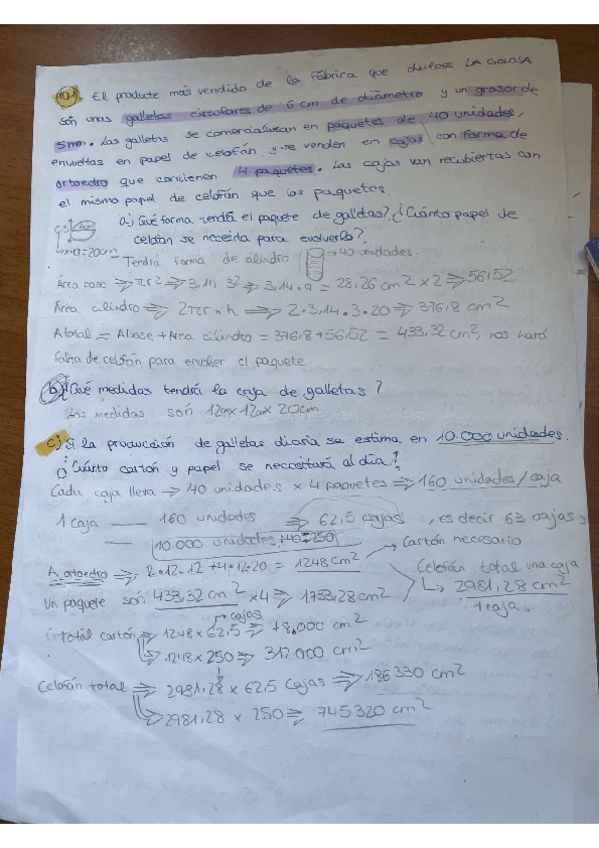 10. El producte más vendido de la fábrica que dulces LA GOLOSA
són unas galletas circulares de 6 cm de diámetro y un grosor de
5 mm. Las galletas se comercializan en paquetes de 40 unidades,
envueltas en papel de celofán y se venden en cajas con forma de
ortoedro que contienen 4 paquetes. Las cajas van recubiertas con
el mismo papel de celofán que los paquetes.
a) ¿Qué forma tendrá el paquete de galletas? ¿Cuánto papel de
celofán se necesita para envolverlo?
=20cm
Tendrá forma de cilindro → 40 unidades
Área base => πr² => 3,14 · 3² => 3,14 · 9 = 28,26 cm² x 2 => 56,52
Área cilindro => 2πr · h => 2 · 3,14 · 3 · 20 => 376,8 cm²
A total = Abase + Área cilindro = 376,8 + 56,52 = 433,32 cm², nos hará
falta de celofán para envolver el paquete.
b) ¿Qué medidas tendrá la caja de galletas?
Las medidas són 12cm x 12cm x 20cm
c) Si la producción de galletas diaria se estima en 10.000 unidades.
¿Cuánto cartón y papel se necesitará al día?
Cada caja lleva → 40 unidades x 4 paquetes => 160 unidades/caja
1 caja — 160 unidades => 62,5 cajas, es decir 63 cajas
— 10.000 unidades :40=250
→ Cartón necesario
A. ortoedro => 2·12·12 + 4·12·20 = 1248 cm²
Celofán total una caja
↳ 2981,28 cm² / 1 caja.
Un paquete són 433,32 cm² x4 => 1733,28 cm²
→ cajas
total cartón => 1248 x 62,5 => 78.000 cm²
↳ 1248 x 250 => 312000 cm²
Celofán total => 2981,28 x 62,5 cajas => 186330 cm²
↳ 2981,28 x 250 => 745320 cm²